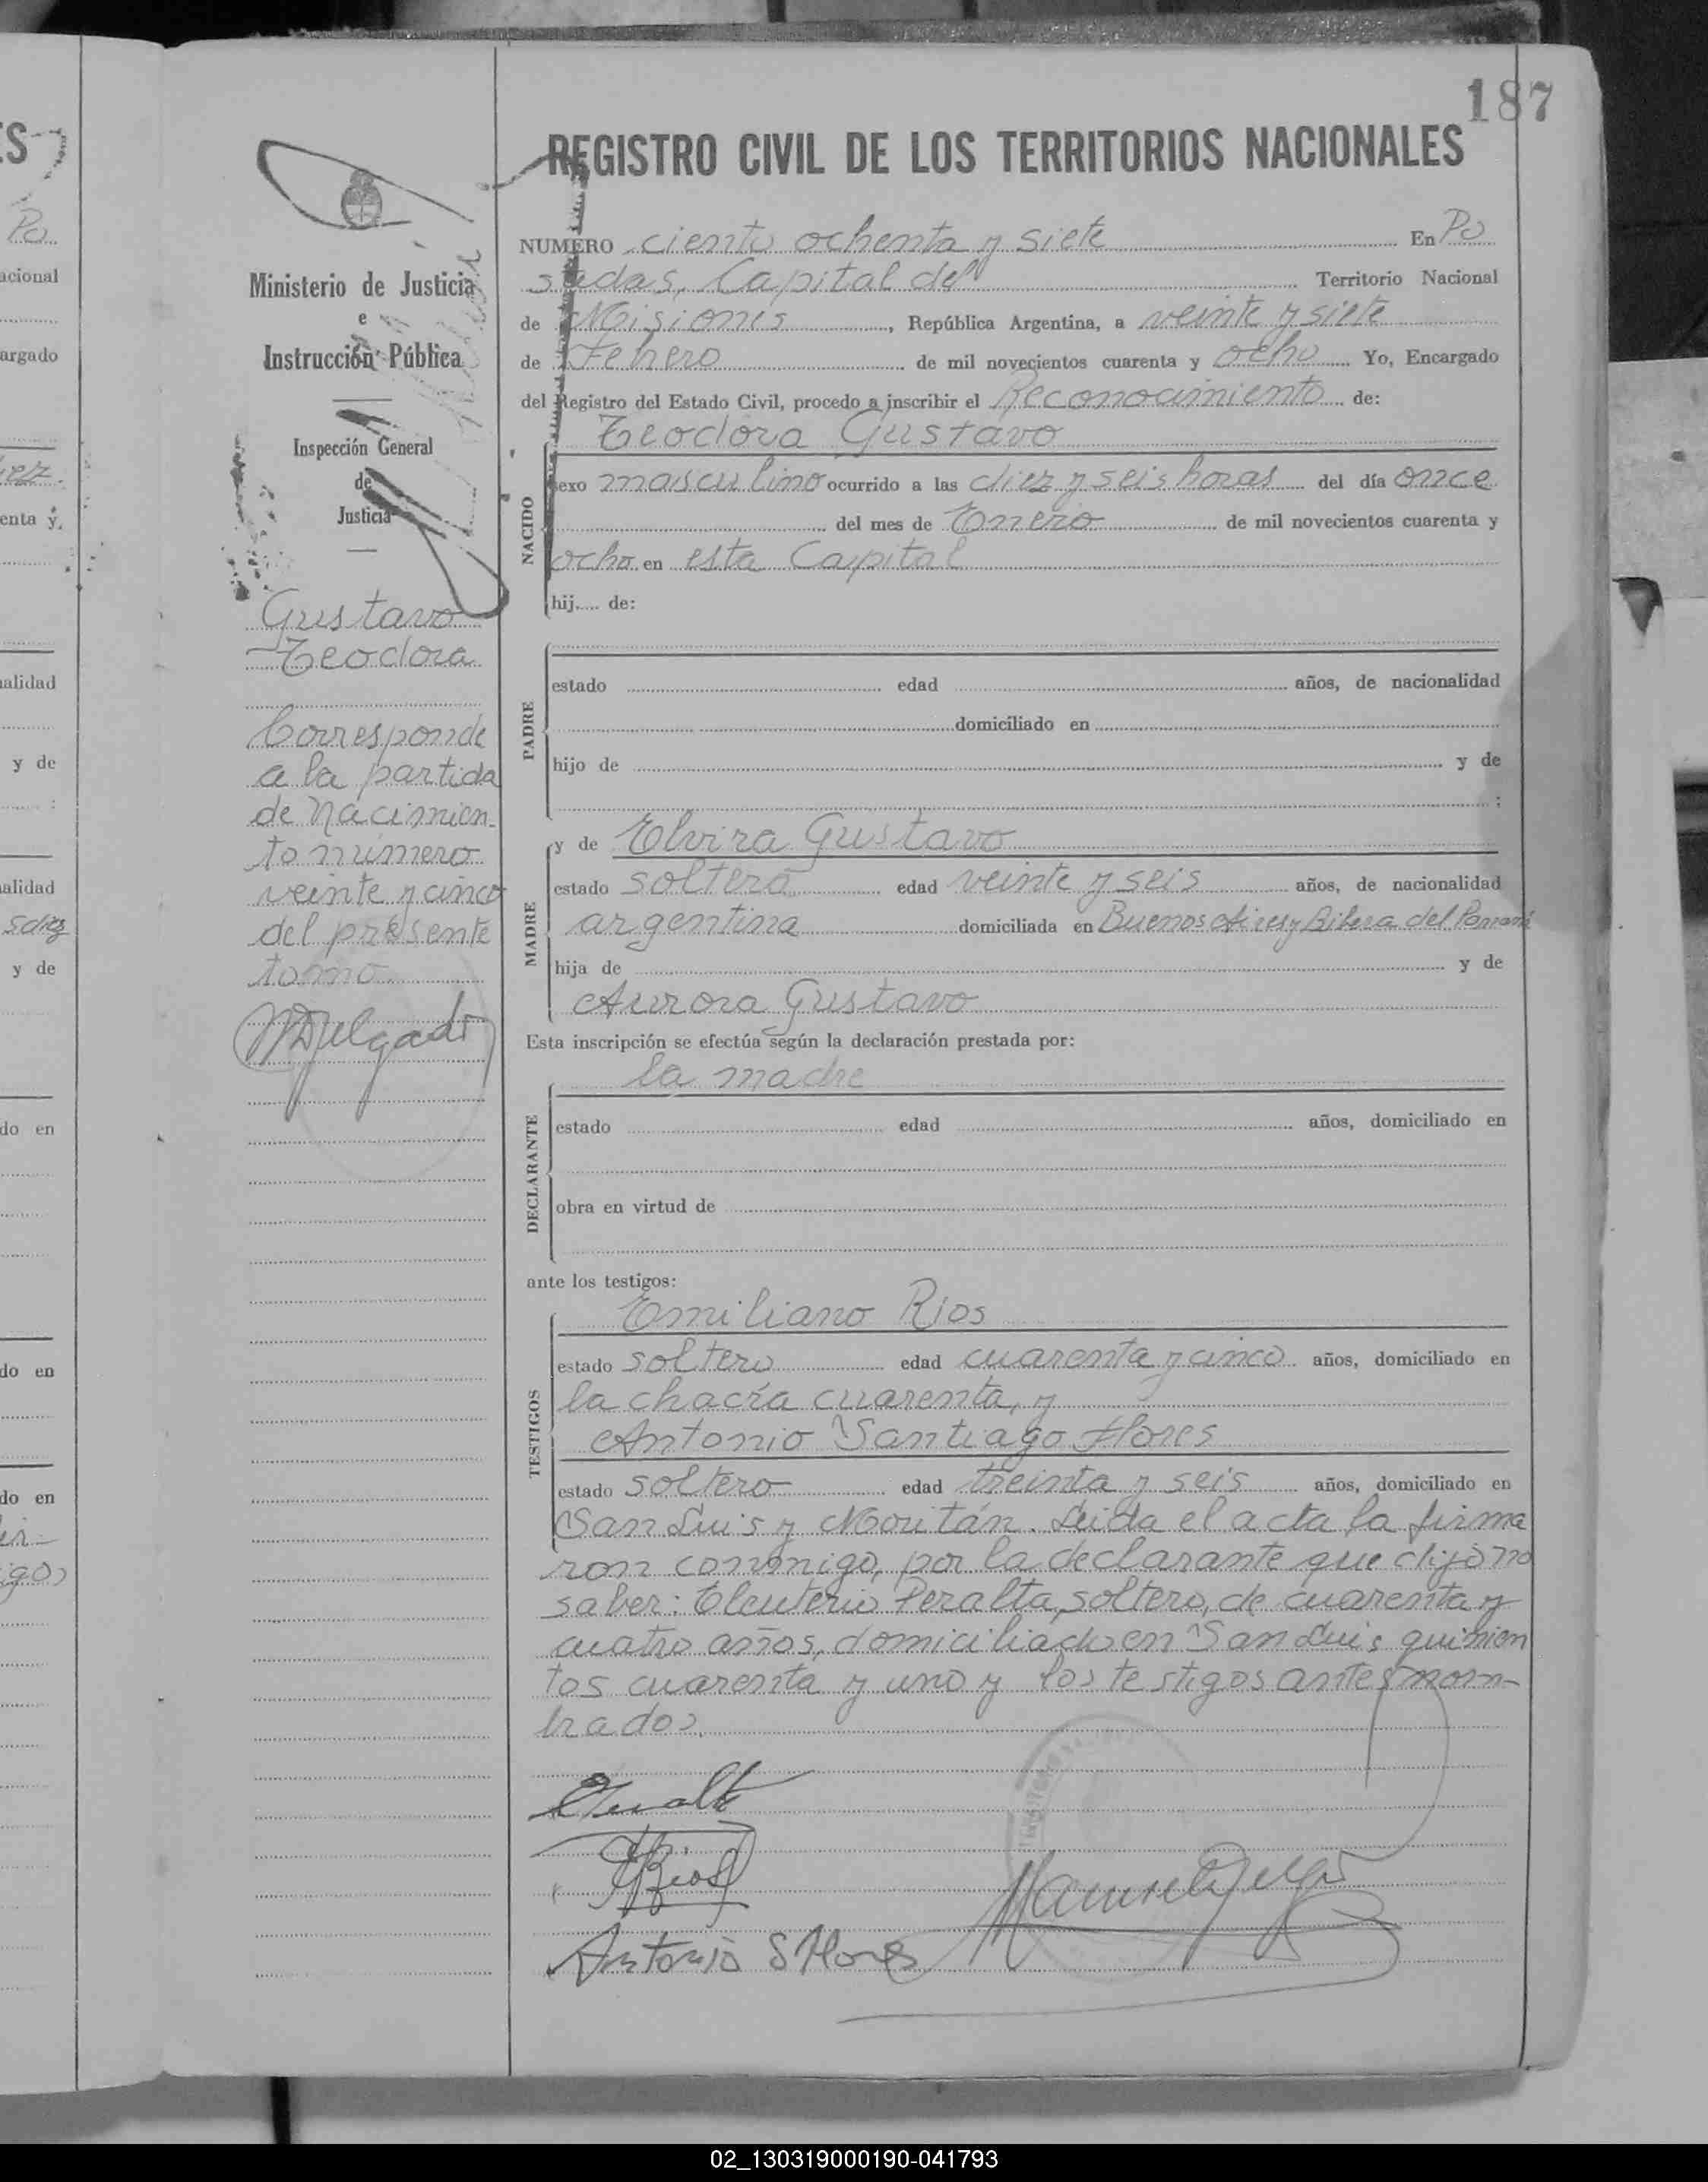 187
REGISTRO CIVIL DE LOS TERRITORIOS NACIONALES
Ministerio de Justicia
e
Instrucción Pública
Inspección General
de
Justicia
Gustavo
Teodora
Corresponde
a la partida
de Nacimien-
to número
veinte y cinco
del presente
tomo
MDelgado
NUMERO ciento ochenta y siete En Po
sadas, Capital del Territorio Nacional
de Misiones, República Argentina, a veinte y siete
de Febrero de mil novecientos cuarenta y ocho Yo, Encargado
del Registro del Estado Civil, procedo a inscribir el Reconocimiento de:
Teodora Gustavo
NACIDO
sexo masculino ocurrido a las diez y seis horas del día once
del mes de Enero de mil novecientos cuarenta y
ocho en esta Capital
hij..... de:
PADRE
estado edad años, de nacionalidad
domiciliado en
hijo de y de
;
y de Elvira Gustavo
MADRE
estado soltera edad veinte y seis años, de nacionalidad
argentina domiciliada en Buenos Aires y Ribera del Paraná
hija de y de
Aurora Gustavo
Esta inscripción se efectúa según la declaración prestada por:
la madre
DECLARANTE
estado edad años, domiciliado en
obra en virtud de
ante los testigos:
Emiliano Rios
TESTIGOS
estado soltero edad cuarenta y cinco años, domiciliado en
la chacra cuarenta, y
Antonio Santiago Flores
estado soltero edad treinta y seis años, domiciliado en
San Luis y Moritán. Leida el acta la firma
ron conmigo, por la declarante que dijo no
saber: Eleuterio Peralta, soltero, de cuarenta y
cuatro años, domiciliado en San Luis quinien
tos cuarenta y uno y los testigos antes nom-
brados.
EPeralta
ERios
Antonio S Flores
Manuel Delgado
02_130319000190-041793